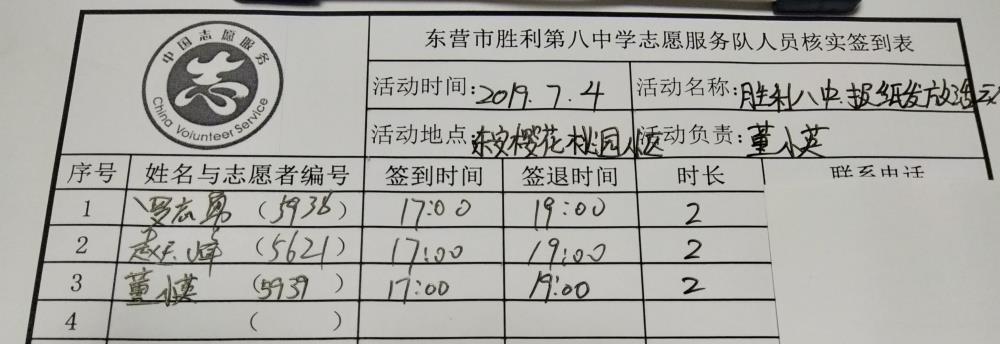 中国志愿服务
志
China Volunteer Service
东营市胜利第八中学志愿服务队人员核实签到表
活动时间:2019.7.4 活动名称:胜利八中报纸发放活动
活动地点:东安樱花桃园 活动负责:董小英
序号 姓名与志愿者编号 签到时间 签退时间 时长 联系电话
1 罗志勇 (5938) 17:00 19:00 2
2 赵天峰 (5621) 17:00 19:00 2
3 董小英 (5939) 17:00 19:00 2
4 ( )